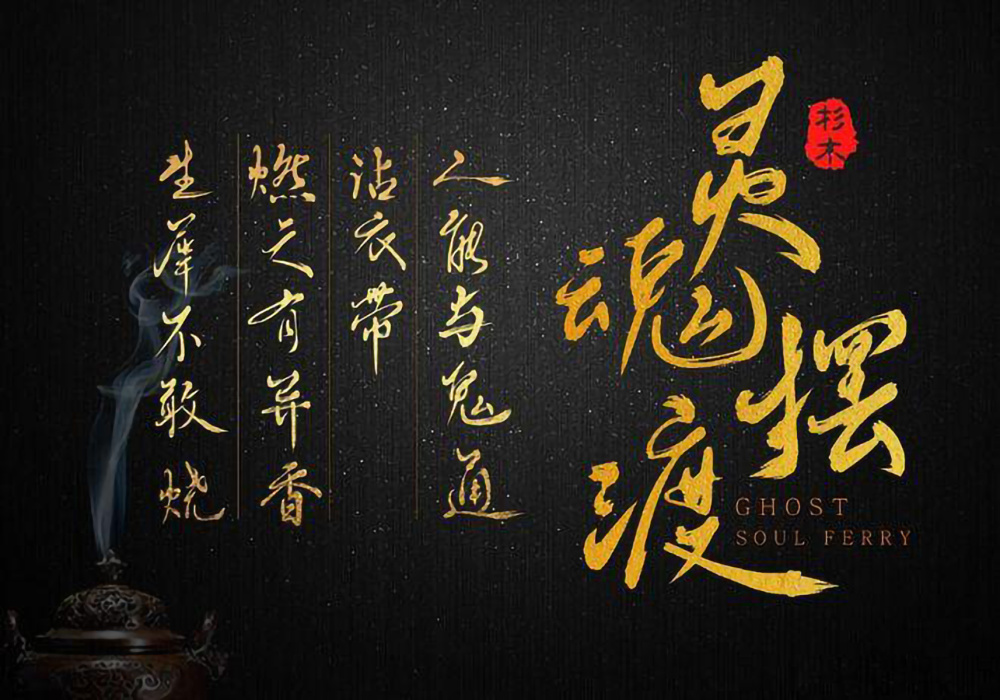 灵魂摆渡
杉木
GHOST
SOUL FERRY
人能与鬼通
沾衣带
燃之有异香
生犀不敢烧